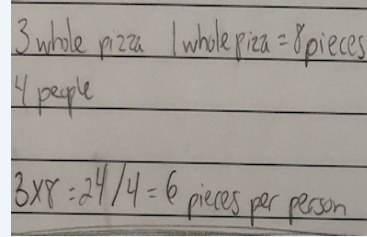 3 whole pizza 1 whole piza = 8 pieces
4 people
3x8 = 24/4 = 6 pieces per person